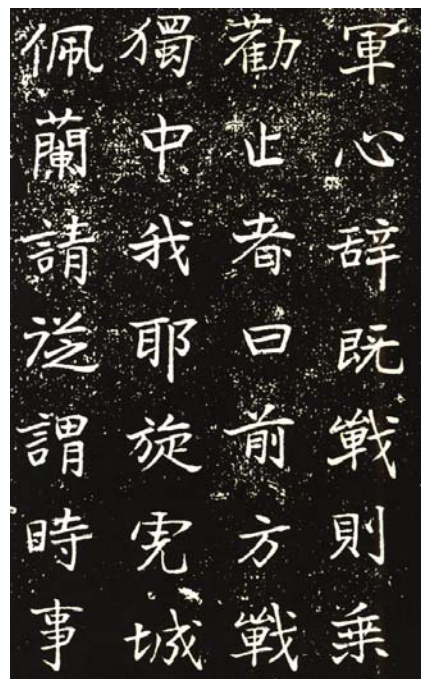 軍心辞既戰則乗
勸止者曰前方戰
獨中我耶旋完城
佩蘭請從謂時事